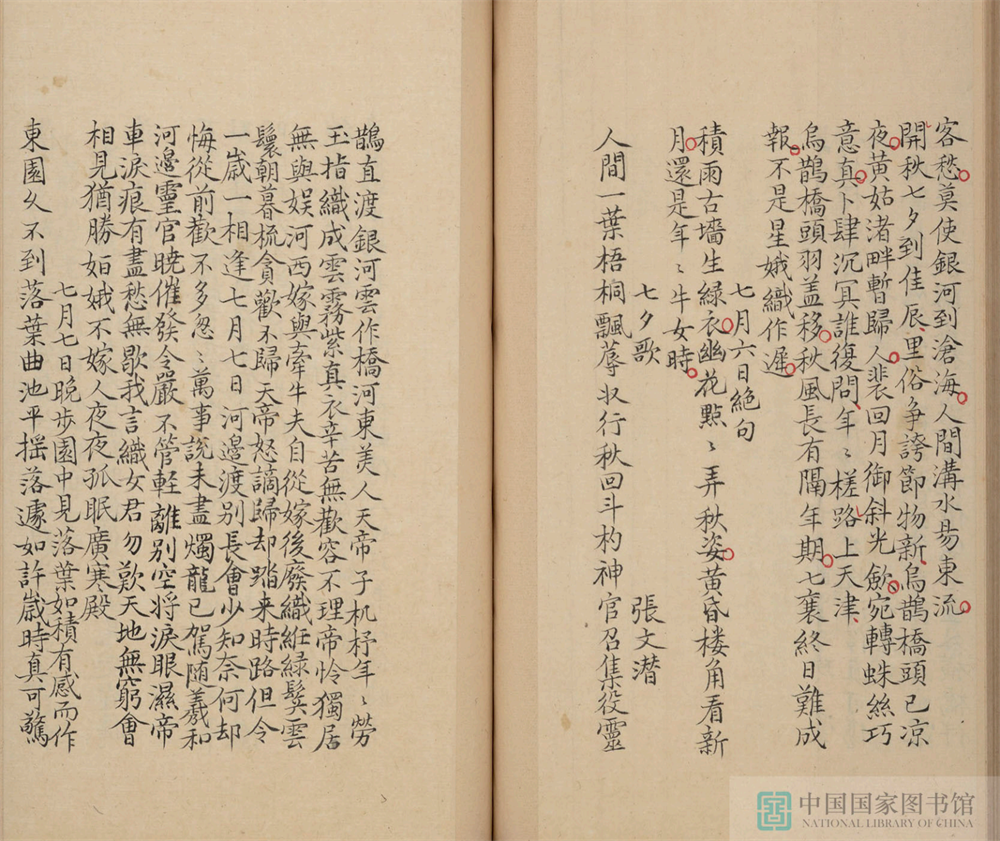 客愁莫使銀河到滄海人間溝水易東流
開秋七夕到佳辰里俗爭誇節物新烏鵲橋頭已凉
夜黄姑渚畔暫歸人裴回月御斜光斂宛轉蛛絲巧
意真卜肆沉冥誰復問年〻槎路上天津
烏鵲橋頭羽盖移秋風長有隔年期七襄終日難成
報不是星娥織作遲
七月六日絕句
積雨古墻生綠衣幽花點〻弄秋姿黄昏楼角看新
月還是年〻牛女時
七夕歌 張文潛
人間一葉梧桐飄蓐收行秋回斗杓神官召集役靈
鵲直渡銀河雲作橋河東美人天帝子机杼年〻勞
玉指織成雲霧紫真衣辛苦無歡容不理帝怜獨居
無與娱河西嫁與牽牛夫自從嫁後廢織絍緑鬂雲
鬟朝暮梳貪歡不歸天帝怒謫歸却踏来時路但令
一歲一相逢七月七日河邊渡别長會少知奈何却
悔從前歡不多怱〻萬事說未盡燭龍已駕随羲和
河邊靈官曉催發令嚴不管輊離别空将淚眼濕帝
車淚痕有盡愁無歇我言織女君勿歎天地無窮會
相見猶勝姮娥不嫁人夜夜孤眠廣寒殿
七月七日晚步園中見落葉如積有感而作
東園久不到落葉曲池平揺落遽如許歲時真可驚
中国国家图书馆
NATIONAL LIBRARY OF CHINA